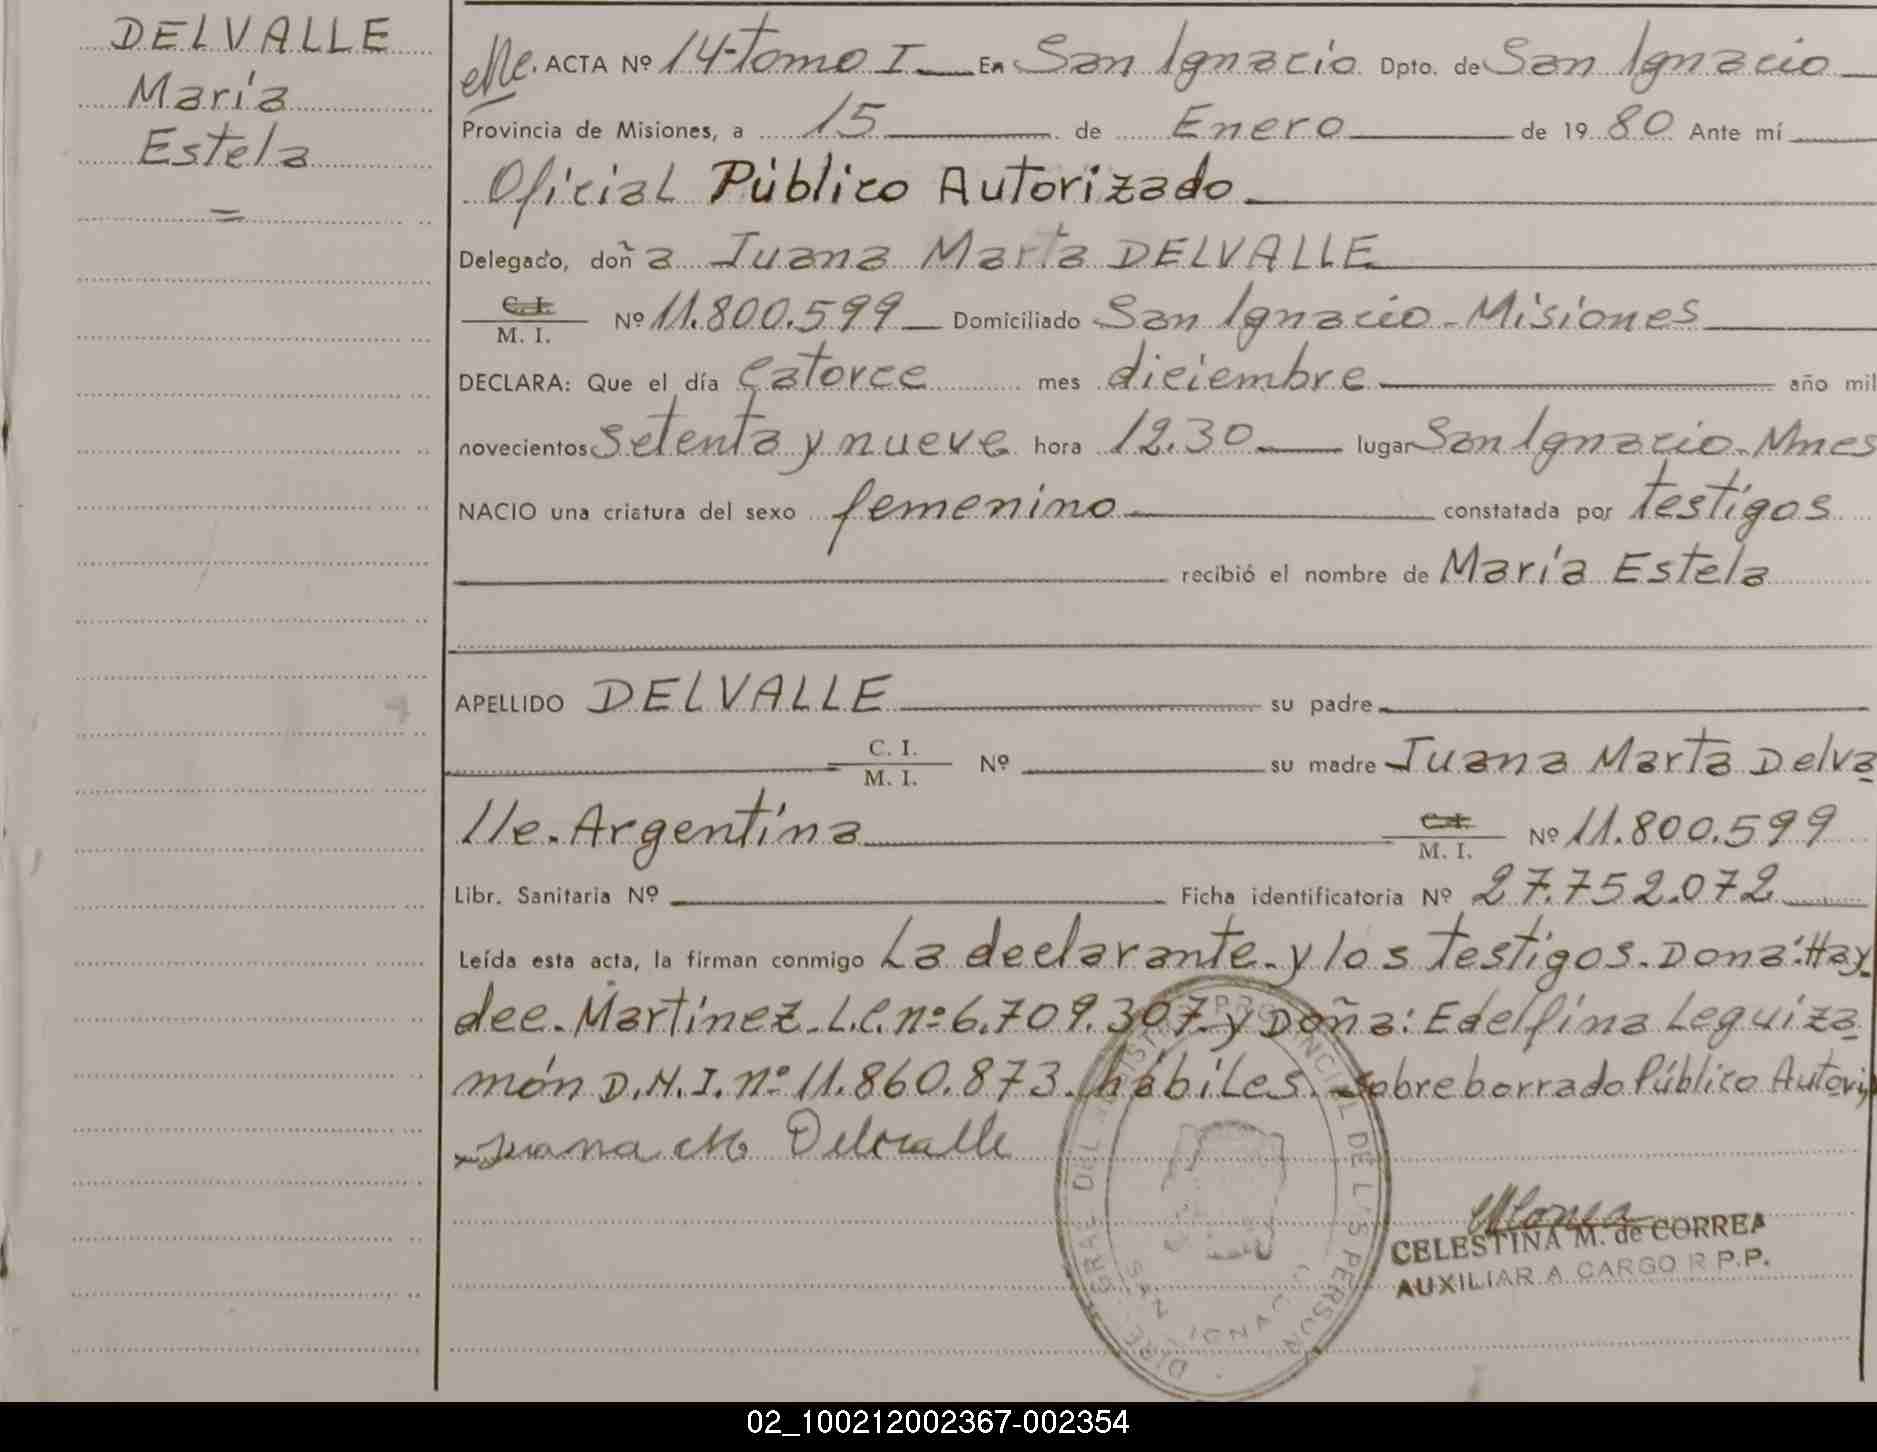 DELVALLE
María
Estela
=
ACTA Nº 14-Tomo I En San Ignacio Dpto. de San Ignacio
Provincia de Misiones, a 15 de Enero de 1980 Ante mí
Oficial Público Autorizado
Delegado, doña Juana Marta DELVALLE
C. I.
M. I. Nº 11.800.599 Domiciliado San Ignacio - Misiones
DECLARA: Que el día Catorce mes diciembre año mil
novecientos Setenta y nueve hora 12.30 lugar San Ignacio - Mnes
NACIO una criatura del sexo femenino constatada por testigos
recibió el nombre de María Estela
APELLIDO DELVALLE su padre
C. I.
M. I. Nº su madre Juana Marta Delva
lle. Argentina C.I.
M. I. Nº 11.800.599
Libr. Sanitaria Nº Ficha identificatoria Nº 27.752.072
Leída esta acta, la firman conmigo La declarante - y los testigos. Dona: Hay
dee. Martinez. L.C. nº 6.709.307 y Doña: Edelfina Leguiza
món D.N.I. nº 11.860.873. hábiles. sobreborrado Público Autori
Juana M Delvalle
CELESTINA M. de CORREA
AUXILIAR A CARGO R P.P.
SAN IGNACIO
02_100212002367-002354